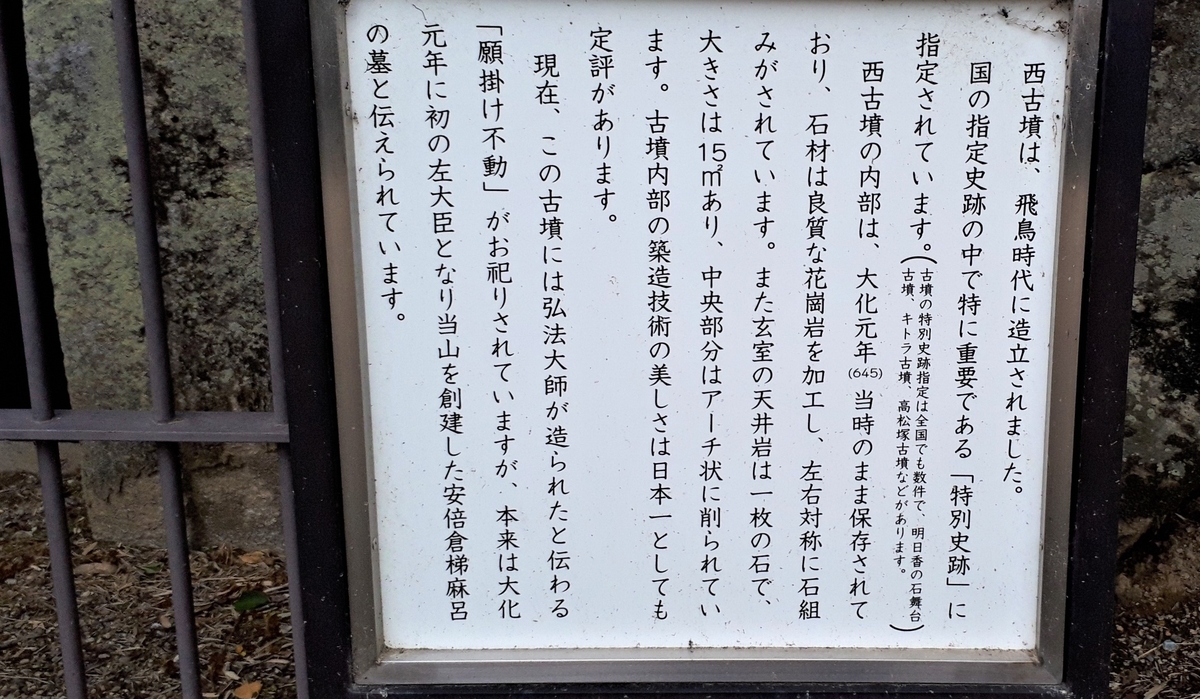 西古墳は、飛鳥時代に造立されました。
国の指定史跡の中で特に重要である「特別史跡」に
指定されています。(古墳の特別史跡指定は全国でも数件で、明日香の石舞台
古墳、キトラ古墳、高松塚古墳などがあります。)
西古墳の内部は、大化元年(645)当時のまま保存されて
おり、石材は良質な花崗岩を加工し、左右対称に石組
みがされています。また玄室の天井岩は一枚の石で、
大きさは15㎡あり、中央部分はアーチ状に削られてい
ます。古墳内部の築造技術の美しさは日本一としても
定評があります。
現在、この古墳には弘法大師が造られたと伝わる
「願掛け不動」がお祀りされていますが、本来は大化
元年に初の左大臣となり当山を創建した安倍倉梯麻呂
の墓と伝えられています。